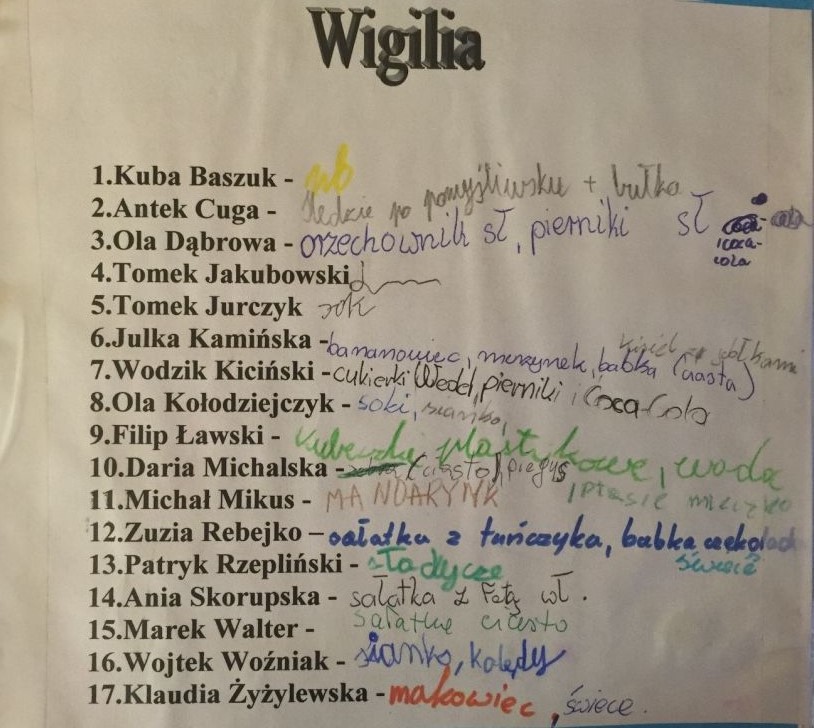 Wigilia
1.Kuba Baszuk -
2.Antek Cuga - śledzie po pomyśliwsku + bułka
3.Ola Dąbrowa - orzechownik sł, pierniki sł
icoca-
cola
4.Tomek Jakubowski
5.Tomek Jurczyk sok
6.Julka Kamińska - bananowiec, murzynek, babka (ciasta)
7.Wodzik Kiciński - cukierki Wedel, pierniki i Coca-Cola
8.Ola Kołodziejczyk - soki, sianko,
9.Filip Ławski - kubeczki plastykowe, woda
10.Daria Michalska - (ciasto), piegus
11.Michał Mikus - MANDARYNK , ptasie mleczko
12.Zuzia Rebejko – sałatka z tuńczyka, babka czekolad
13.Patryk Rzepliński - słodycze świece
14.Ania Skorupska - sałatka z Fetą wł.
15.Marek Walter - ciasto
16.Wojtek Woźniak - sianko, kolędy
17.Klaudia Żyżylewska - makowiec, świece.